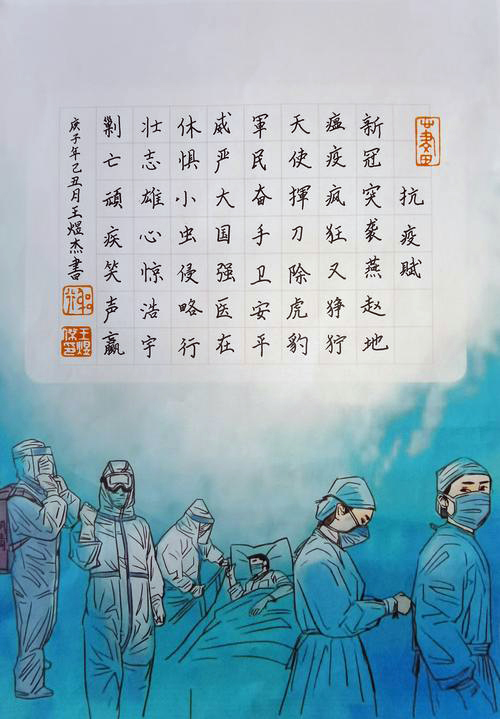 抗疫賦
新冠突袭燕赵地
瘟疫疯狂又狰狞
天使揮刀除虎豹
軍民奋手卫安平
威严大国强医在
休惧小虫侵略行
壮志雄心惊浩宇
剿亡頑疾笑声赢
庚子年己丑月王煜杰書
王煜傑印